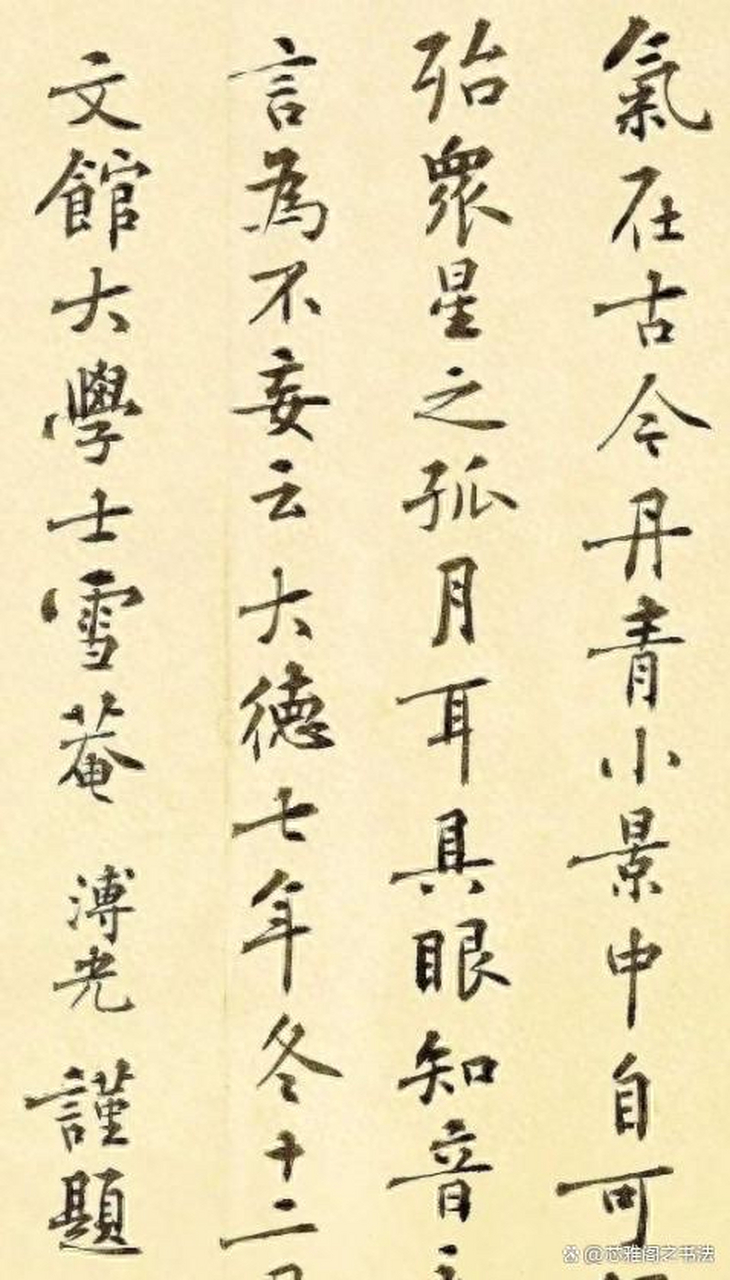 氣在古今丹青小景中自可
殆衆星之孤月耳具眼知音
言為不妄云大德七年冬十二
文館大學士雪菴溥光謹題
@芯雅阁之书法